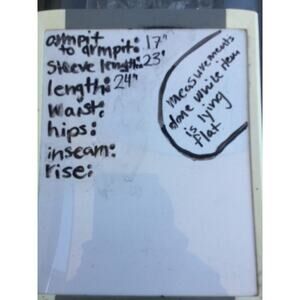 armpit
to armpit: 17"
sleeve length: 23"
length: 24"
waist:
hips:
inseam:
rise:
measurements
done while item
is lying
flat